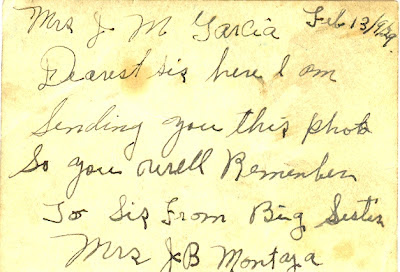 Mrs J M Garcia Feb 13/1929.
Dearest sis here I am
Sending you this photo
So you will Remember
To Sis From Big Sister
Mrs J B Montoya